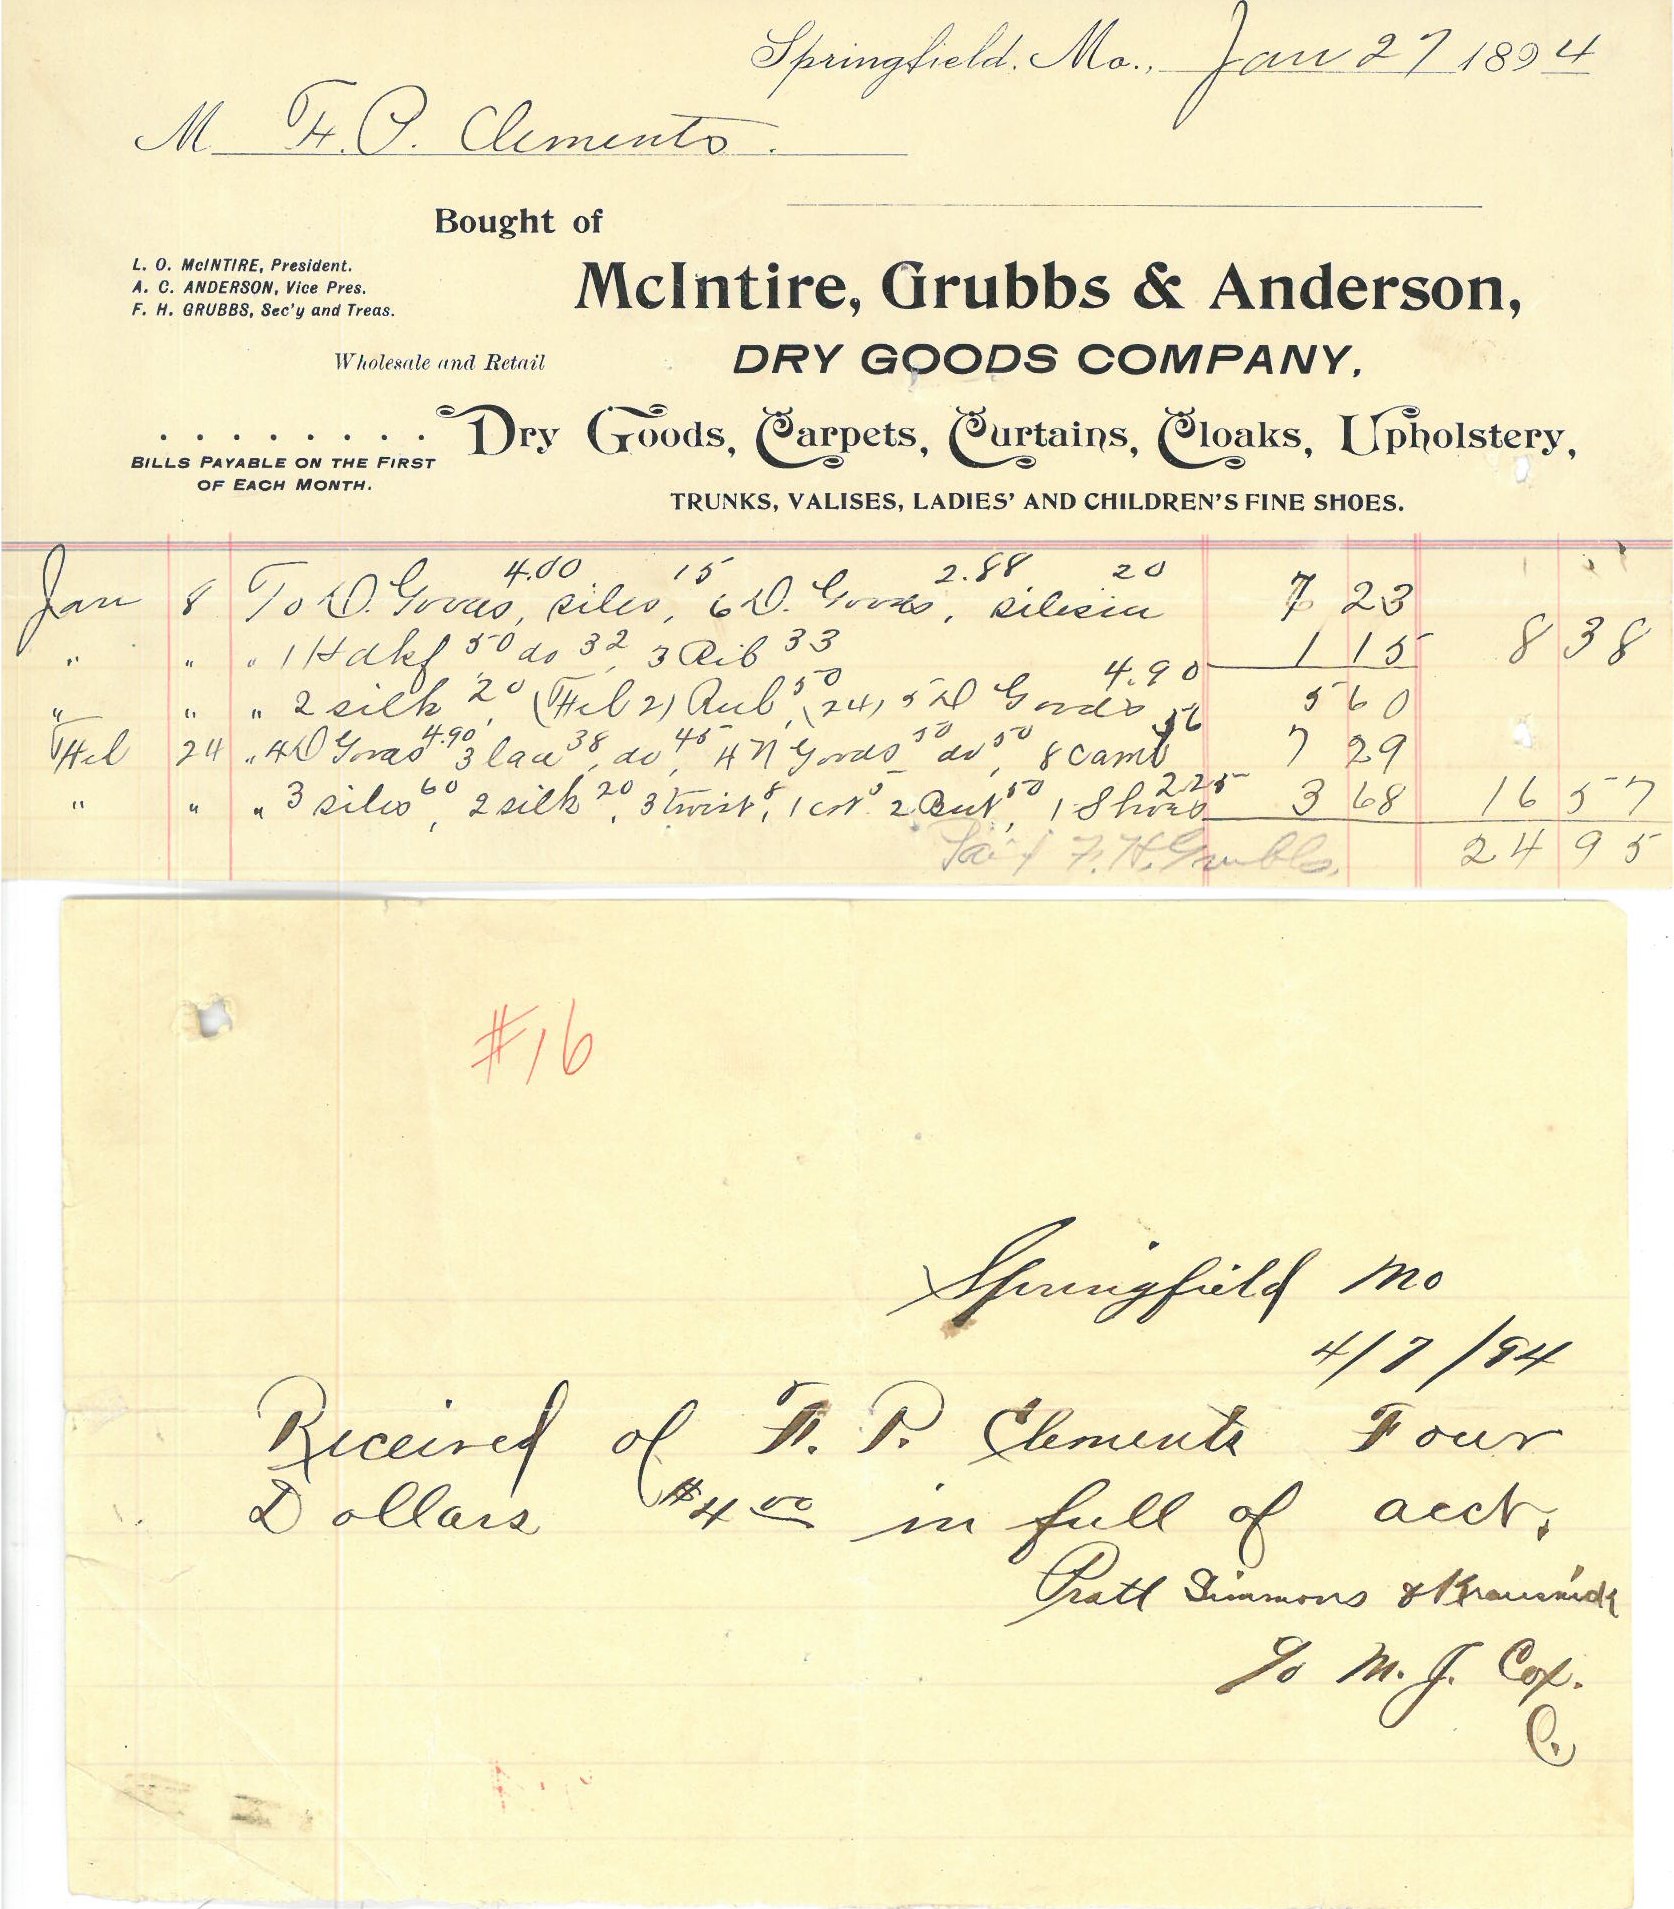 Springfield, Mo., Jan 27 1894
M F. P. Clements.
Bought of
L. O. McINTIRE, President.
A. C. ANDERSON, Vice Pres.
F. H. GRUBBS, Sec'y and Treas.
McIntire, Grubbs & Anderson,
Wholesale and Retail
DRY GOODS COMPANY,
Dry Goods, Carpets, Curtains, Cloaks, Upholstery,
BILLS PAYABLE ON THE FIRST
OF EACH MONTH.
TRUNKS, VALISES, LADIES' AND CHILDREN'S FINE SHOES.
Jan 8 To D. Goods, 4.00 siles, 15 6 D. Goods, 2.88 silesia 20 7 23
" " " 1 Hdkf 50 do 32, 3 Rib 33 1 15 8 38
" " " 2 silk 20, (Feb 2) Rub 50, (24) 5 D Goods 4.90 5 60
Feb 24 " 4 D Goods 4.90 3 lace 38, do 45, 4 N Goods 50 do 50, 8 camb 56 7 29
" " " 3 siles 60, 2 silk 20, 3 twist 8, 1 cot 5 2 But 50, 1 Shoes 2.25 3 68 16 57
Paid F. H. Grubbs. 24 95
#16
Springfield Mo
4/7/94
Received of F. P. Clements Four
Dollars $4 00 in full of acct.
Pratt Simmons & Krausnick
% M. J. Cox.
C.